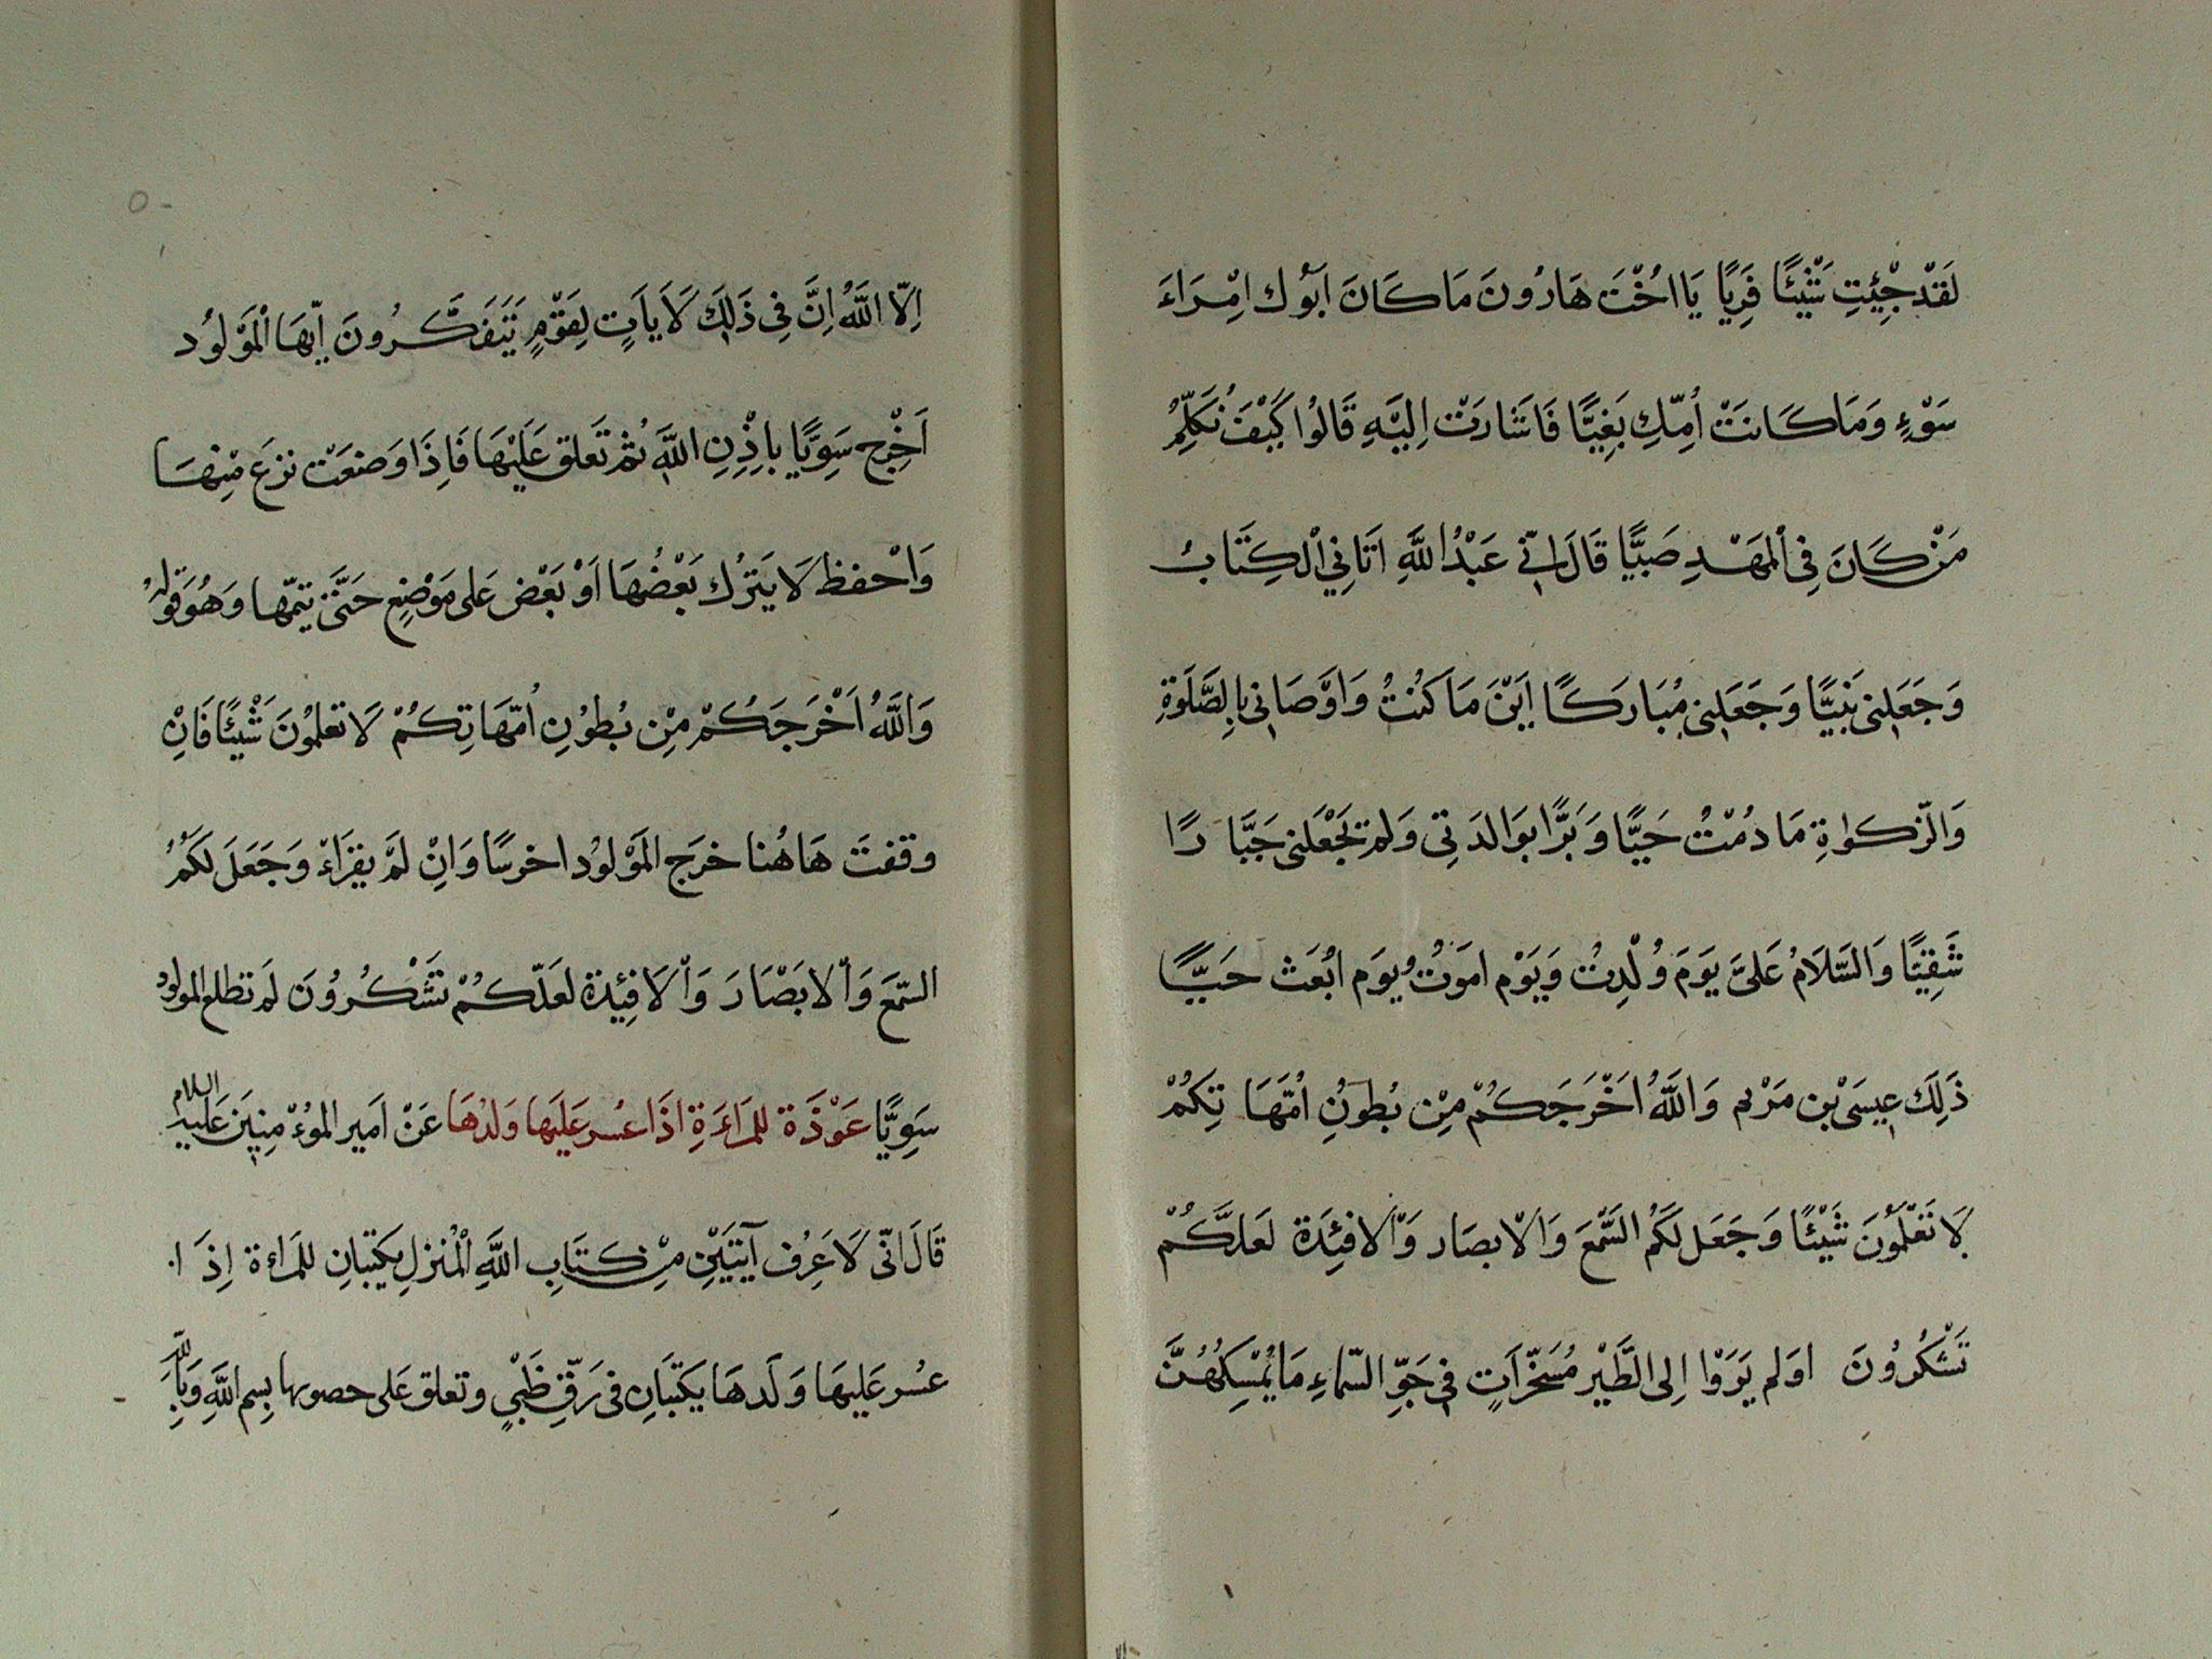 لَقَدْ جِئْتِ شَيْئًا فَرِيًّا يَا اُخْتَ هَارُونَ مَا كَانَ اَبُوكِ امْرَاءَ
سَوْءٍ وَمَا كَانَتْ اُمُّكِ بَغِيًّا فَاَشَارَتْ اِلَيْهِ قَالُوا كَيْفَ نُكَلِّمُ
مَنْ كَانَ فِي الْمَهْدِ صَبِيًّا قَالَ اِنِّي عَبْدُ اللَّهِ اتَانِيَ الْكِتَابُ
وَجَعَلَنِي نَبِيًّا وَجَعَلَنِي مُبَارَكًا اَيْنَ مَا كُنْتُ وَاَوْصَانِي بِالصَّلَوةِ
وَالزَّكَوٰاةِ مَا دُمْتُ حَيًّا وَبَرًّا بِوَالِدَتِي وَلَمْ يَجْعَلْنِي جَبَّارًا
شَقِيًّا وَالسَّلَامُ عَلَىَّ يَوْمَ وُلِدْتُ وَيَوْم اَمُوتُ وَيَوَم ابْعَث حَيًّا
ذَلِكَ عِيسَى بْن مَرْيم وَاللَّهُ اَخْرَجَكُمْ مِنْ بُطُونِ اُمَّهَاتِكُمْ
لَا تَعْلَمُونَ شَيْئًا وَجَعَلَ لَكُمُ السَّمْعَ وَالْابصَار وَالْافْئِدَة لَعَلَّكُمْ
تَشْكُرُونَ اوَلم يَرَوْا اِلى الطَّيْرِ مُسَخَّرَاتٍ فِي جَوِّ السَّمَاءِ مَا يُمْسِكُهُنَّ
اِلّا اللَّهُ اِنَّ فِي ذَلِكَ لَايَاتٍ لِقَوْمٍ يَتَفَكَّرُونَ اَيُّهَا الْمَوْلُود
اَخْرِج سَوِيًّا باِذْنِ اللَّهِ ثُمّ تَعلق عَلَيْهَا فَاِذَا وَضعَتْ نزعَ مِنْهَا
وَاحْفظ لَا يَتْرُك بَعْضُهَا اَوْ بَعْض عَلى مَوْضِعٍ حَتَّى يتمّها وَهُوَ قَولهُ
وَاللَّهُ اَخْرَجَكُمْ مِنْ بُطُوْنِ اُمَّهَاتِكُمْ لَا تعلمُونَ شَيْئًا فَاِنْ
وقفتَ هَاهُنا خرَج المَوْلوُد اخرسًا وَاِنْ لَمْ يقرَاءْ وَجَعَلَ لَكُمُ
السّمعَ وَالْابْصَارَ وَالْافِئِدةَ لعَلّكُمْ تَشْكُرُونَ لم تطلع المولودُ
سَوِيًّا عَوْذَة للمَراءَةِ اذَا عسُر عَلَيها وَلدُهَا عَنْ اَمير المُوُمِنِيَن عَليهِ السلام
قَالَ انّى لَاعَرِف آيَتَيْنِ مِنْ كتَابِ اللَّهِ الْمُنزلِ يكتبانِ للمَراءة اِذَا
عسُر عَليهَا وَلَدهَا يَكتبَانِ فى رَقِّ ظَبْيٍ وتعلق عَلى حصويها بِسمِ اللَّهِ وَبِاللَّهِ